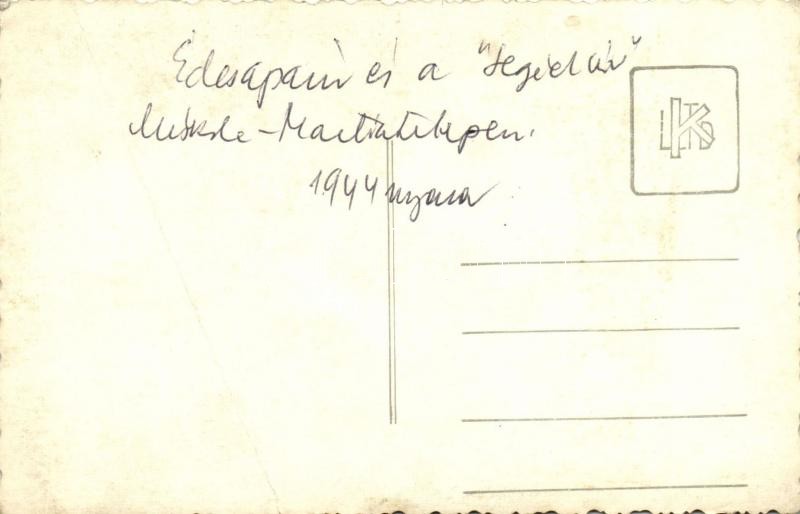 Édesapám és a "segédúr"
Miskolc-Martintelepen.
1944 nyara